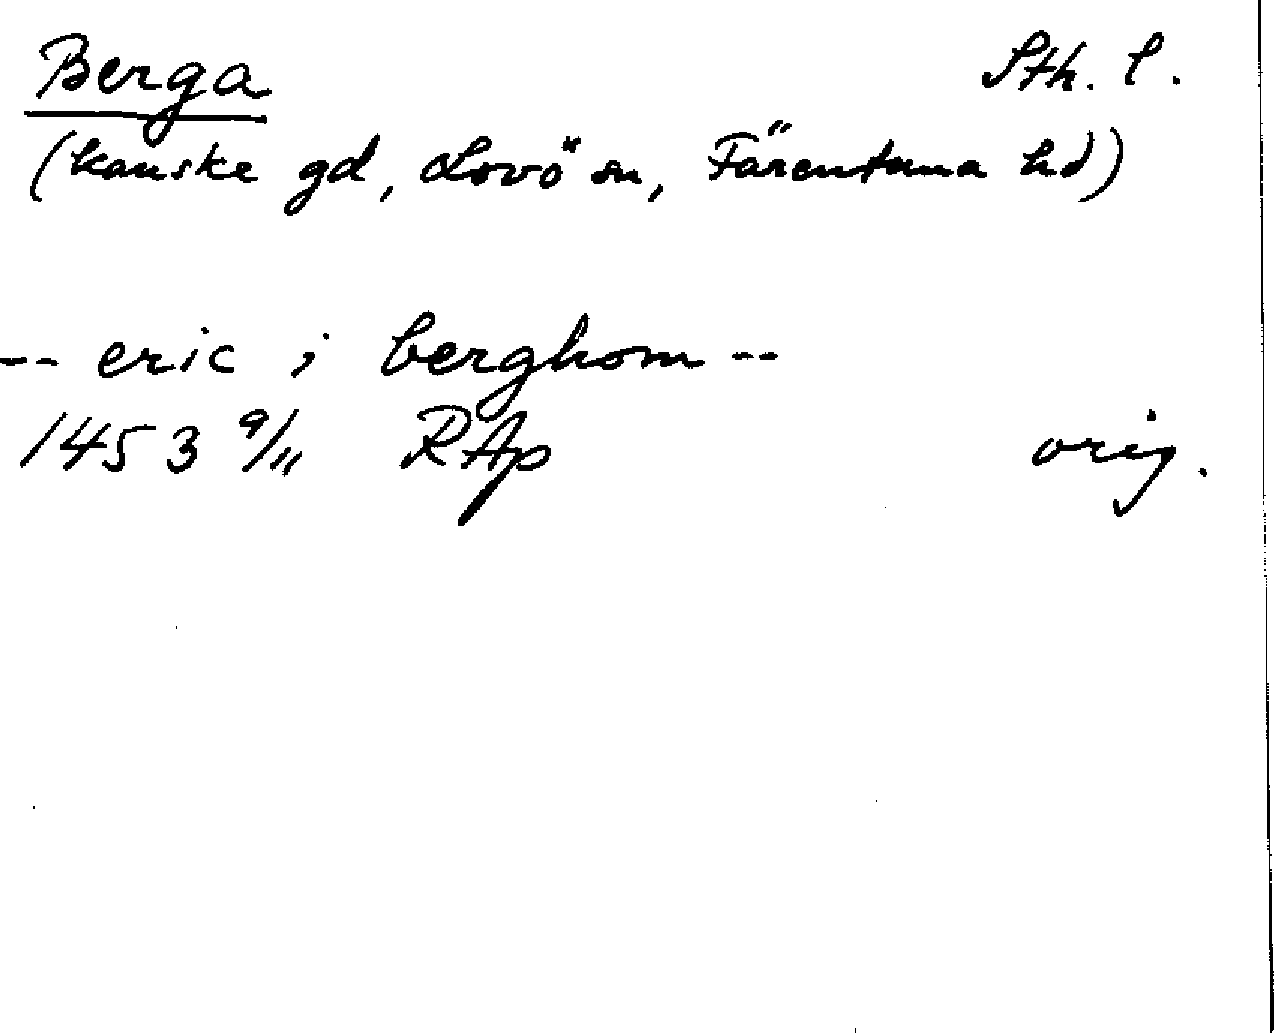 Berga Sth. l.
(kanske gd, Lovö sn, Färentuna hd)
-- eric i berghom --
1453 9/11 RAp orig.